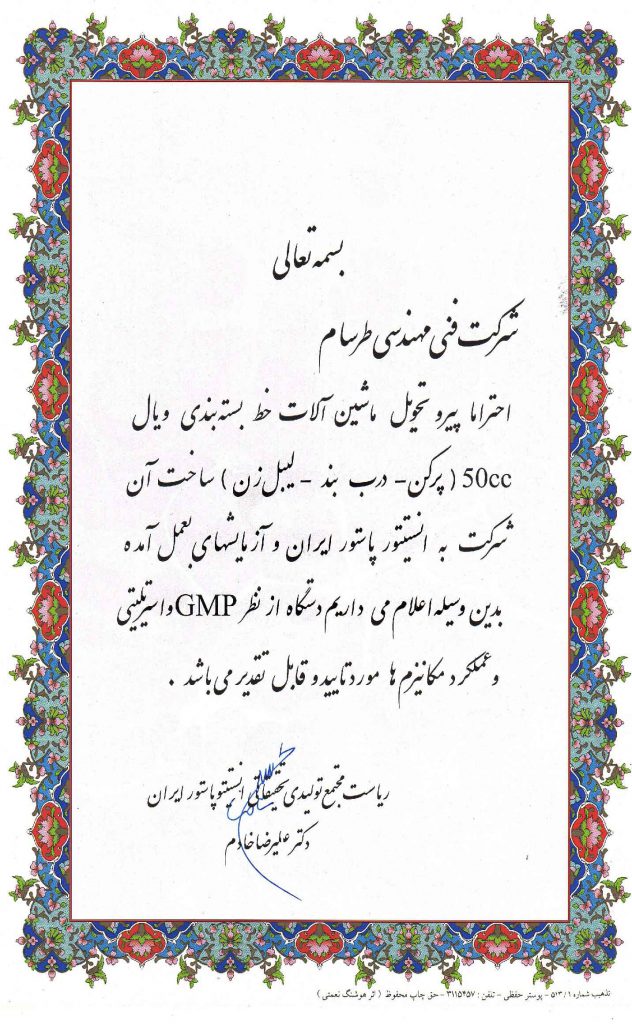 بسمه تعالی
شرکت فنی مهندسی طرسام
احتراما پیرو تحویل ماشین آلات خط بسته بندی ویال
50cc ( پرکن - درب بند - لیبل زن ) ساخت آن
شرکت به انستیتور پاستور ایران و آزمایشهای بعمل آمده
بدین وسیله اعلام می داریم دستگاه از نظر GMP و استریلیتی
و عملکرد مکانیزم ها مورد تایید و قابل تقدیر می باشد .
ریاست مجتمع تولیدی تحقیقاتی انستیتو پاستور ایران
دکتر علیرضا خادم
تذهیب شماره ۵۱۳/۱ - پوستر حفظی - تلفن : ۳۱۱۵۴۵۷ - حق چاپ محفوظ ( اثر هوشنگ نعمتی )